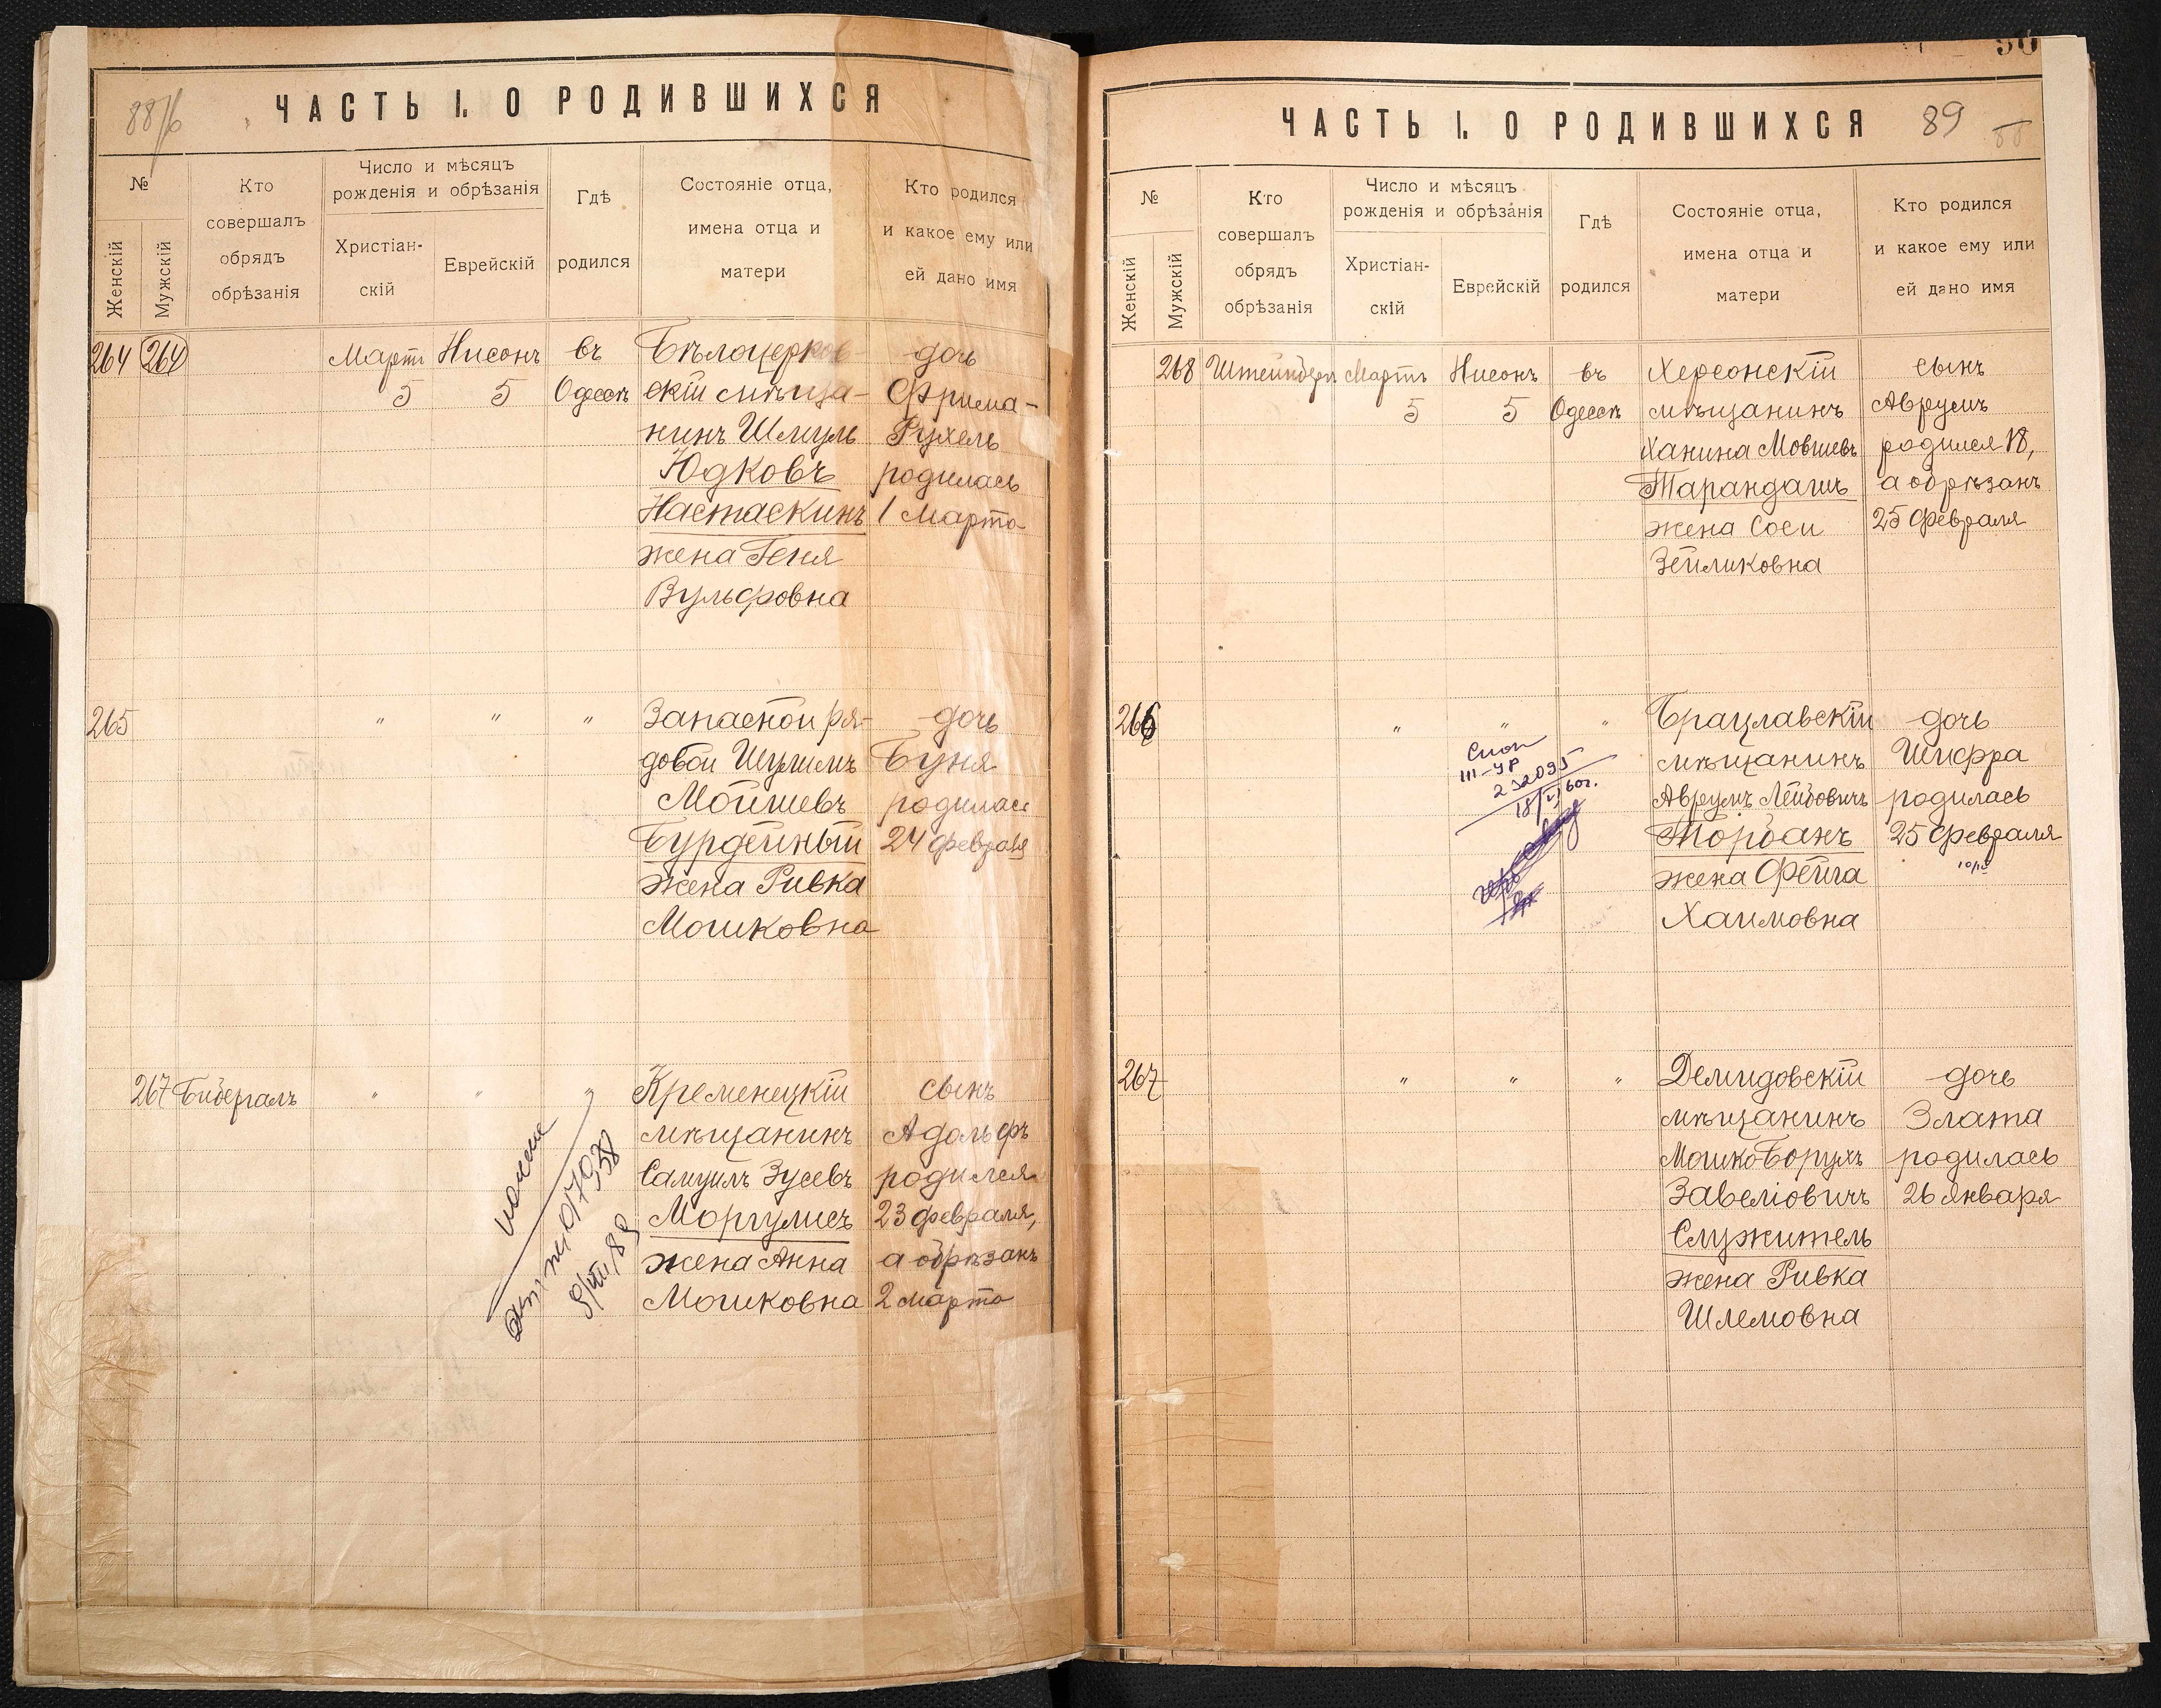 ЧАСТЬ I. О РОДИВШИХСЯ
№
Женскій
Мужскій
Кто
совершалъ
обрядъ
обрѣзанія
Число и мѣсяцъ
рожденія и обрѣзанія
Христіан-
скій
Еврейскій
Гдѣ
родился
Состояніе отца,
имена отца и
матери
Кто родился
и какое ему или
ей дано имя
264 264 Мартъ Нисонъ въ Бѣлоцерков- дочь
5 5 Одессѣ скій мѣща- Фрима-
нинъ Шмуль Рухель
Юдковъ родилась
Настаскинъ 1 Марта
жена Геня
Вульфовна
265 " " " Запасной ря- дочь
довой Шулимъ Буня
Мойшевъ родилась
Бурдейный 24 февраля
жена Ривка
Мошковна
267 Бибергалъ " " " Кременецкій сынъ
мѣщанинъ Адольфъ
Самуилъ Зусевъ родился
Моргулисъ 23 февраля,
жена Анна а обрѣзанъ
Мошковна 2 марта
ЧАСТЬ I. О РОДИВШИХСЯ 89
№
Женскій
Мужскій
Кто
совершалъ
обрядъ
обрѣзанія
Число и мѣсяцъ
рожденія и обрѣзанія
Христіан-
скій
Еврейскій
Гдѣ
родился
Состояніе отца,
имена отца и
матери
Кто родился
и какое ему или
ей дано имя
268 Штейнберг Мартъ Нисонъ въ Херсонскій сынъ
5 5 Одессѣ мѣщанинъ Аврумъ
Ханина Мовшевъ родился 18,
Тарандашъ а обрѣзанъ
жена Соси 25 февраля
Зейликовна
266 " " " Брацлавскій дочь
мѣщанинъ Шифра
Аврумъ Лейбовичъ родилась
Торбанъ 25 февраля
жена Фейга
Хаимовна
III-УР
232095
267 " " " Демидовскій дочь
мѣщанинъ Злата
Мошко Борухъ родилась
Завеліовичъ 26 Января
Служитель
жена Ривка
Шлемовна